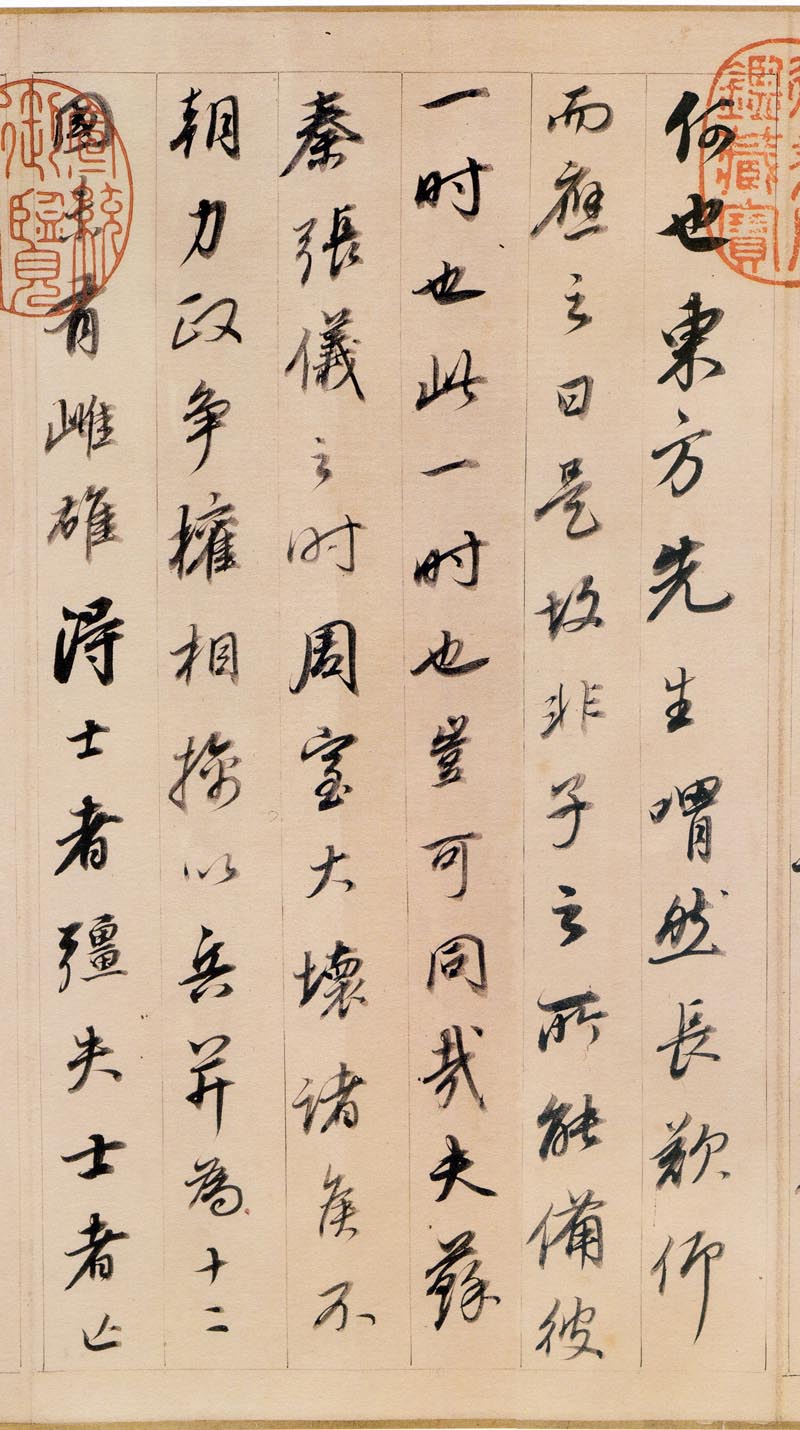 何也東方先生喟然長歎仰
而應之曰是故非子之所能備彼
一时也此一时也豈可同哉夫蘇
秦張儀之时周室大壞諸侯不
朝力政争權相擒以兵并為十二
國未有雌雄得士者彊失士者亡
鑑藏寶
御覽